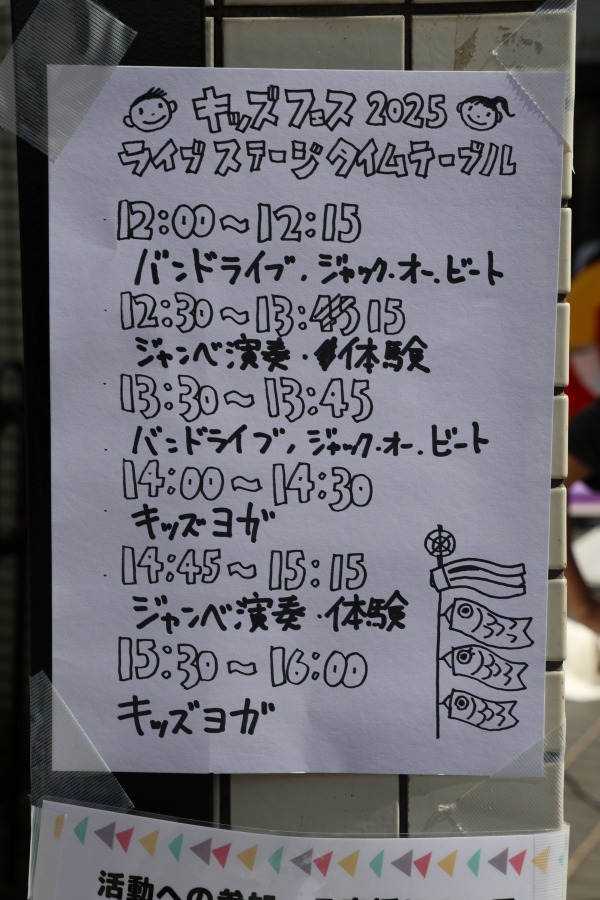 キッズフェス 2025
ライブステージタイムテーブル
12:00〜12:15
バンドライブ,ジャック・オー・ビート
12:30〜13:15
ジャンベ演奏・体験
13:30〜13:45
バンドライブ,ジャック・オー・ビート
14:00〜14:30
キッズヨガ
14:45〜15:15
ジャンベ演奏・体験
15:30〜16:00
キッズヨガ
活動への参加